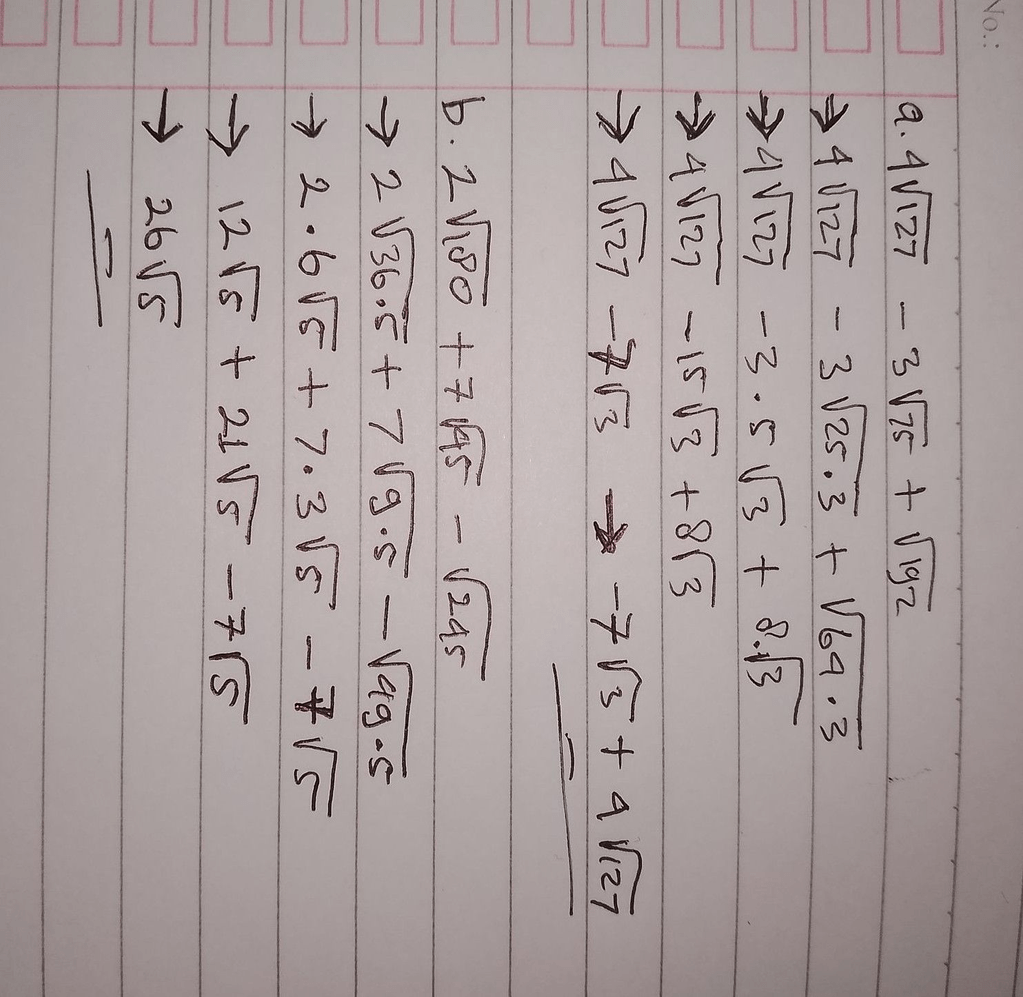 No.:
a. 4√127 - 3√75 + √192
→ 4√127 - 3√25.3 + √64.3
→ 4√127 - 3.5√3 + 8.√3
→ 4√127 - 15√3 + 8√3
→ 4√127 - 7√3 → -7√3 + 4√127
b. 2√180 + 7√45 - √245
→ 2√36.5 + 7√9.5 - √49.5
→ 2.6√5 + 7.3√5 - 7√5
→ 12√5 + 21√5 - 7√5
→ 26√5